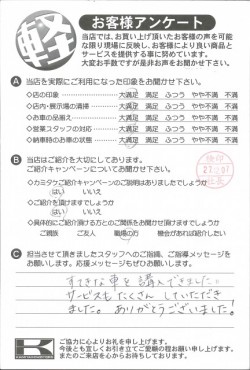 軽
お客様アンケート
当店では、お買い上げ頂いたお客様の声を可能
な限り現場に反映し、お客様により良い商品と
サービスを提供する事に努めています。
大変お手数ですが是非お声をお聞かせ下さい。
A 当店を実際にご利用になった印象をお聞かせ下さい。
◇店の印象 大満足 満足 ふつう やや不満 不満
◇店内・展示場の清掃 大満足 満足 ふつう やや不満 不満
◇お車の品揃え 大満足 満足 ふつう やや不満 不満
◇営業スタッフの対応 大満足 満足 ふつう やや不満 不満
◇納車時のお車の状態 大満足 満足 ふつう やや不満 不満
B 当店はご紹介を大切にしております。
ご紹介キャンペーンについてお聞かせ下さい。
◇カミタケご紹介キャンペーンのご説明はありましたでしょうか
はい いいえ
◇ご紹介を頂けますでしょうか
はい いいえ
◇具体的にご紹介頂ける方とのご関係をお聞かせ頂けますでしょうか
ご親族 ご友人 職場の方 機会があれば紹介したい
C 担当させて頂きましたスタッフへのご指摘、ご指導メッセージを
お願いします。応援メッセージもぜひお願いします。
すてきな車を購入できました。
サービスもたくさんしていただき
ました。ありがとうございました!
K
ご協力に心よりお礼を申し上げます。
今後とも宜しくお引き立てご愛顧の程お願い申し上げます。
またのご来店を心からお待ちしております。